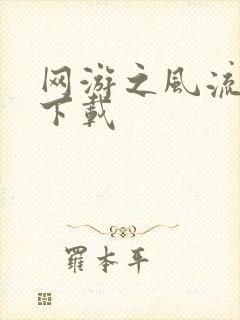 网游之风流
下载
罗本平